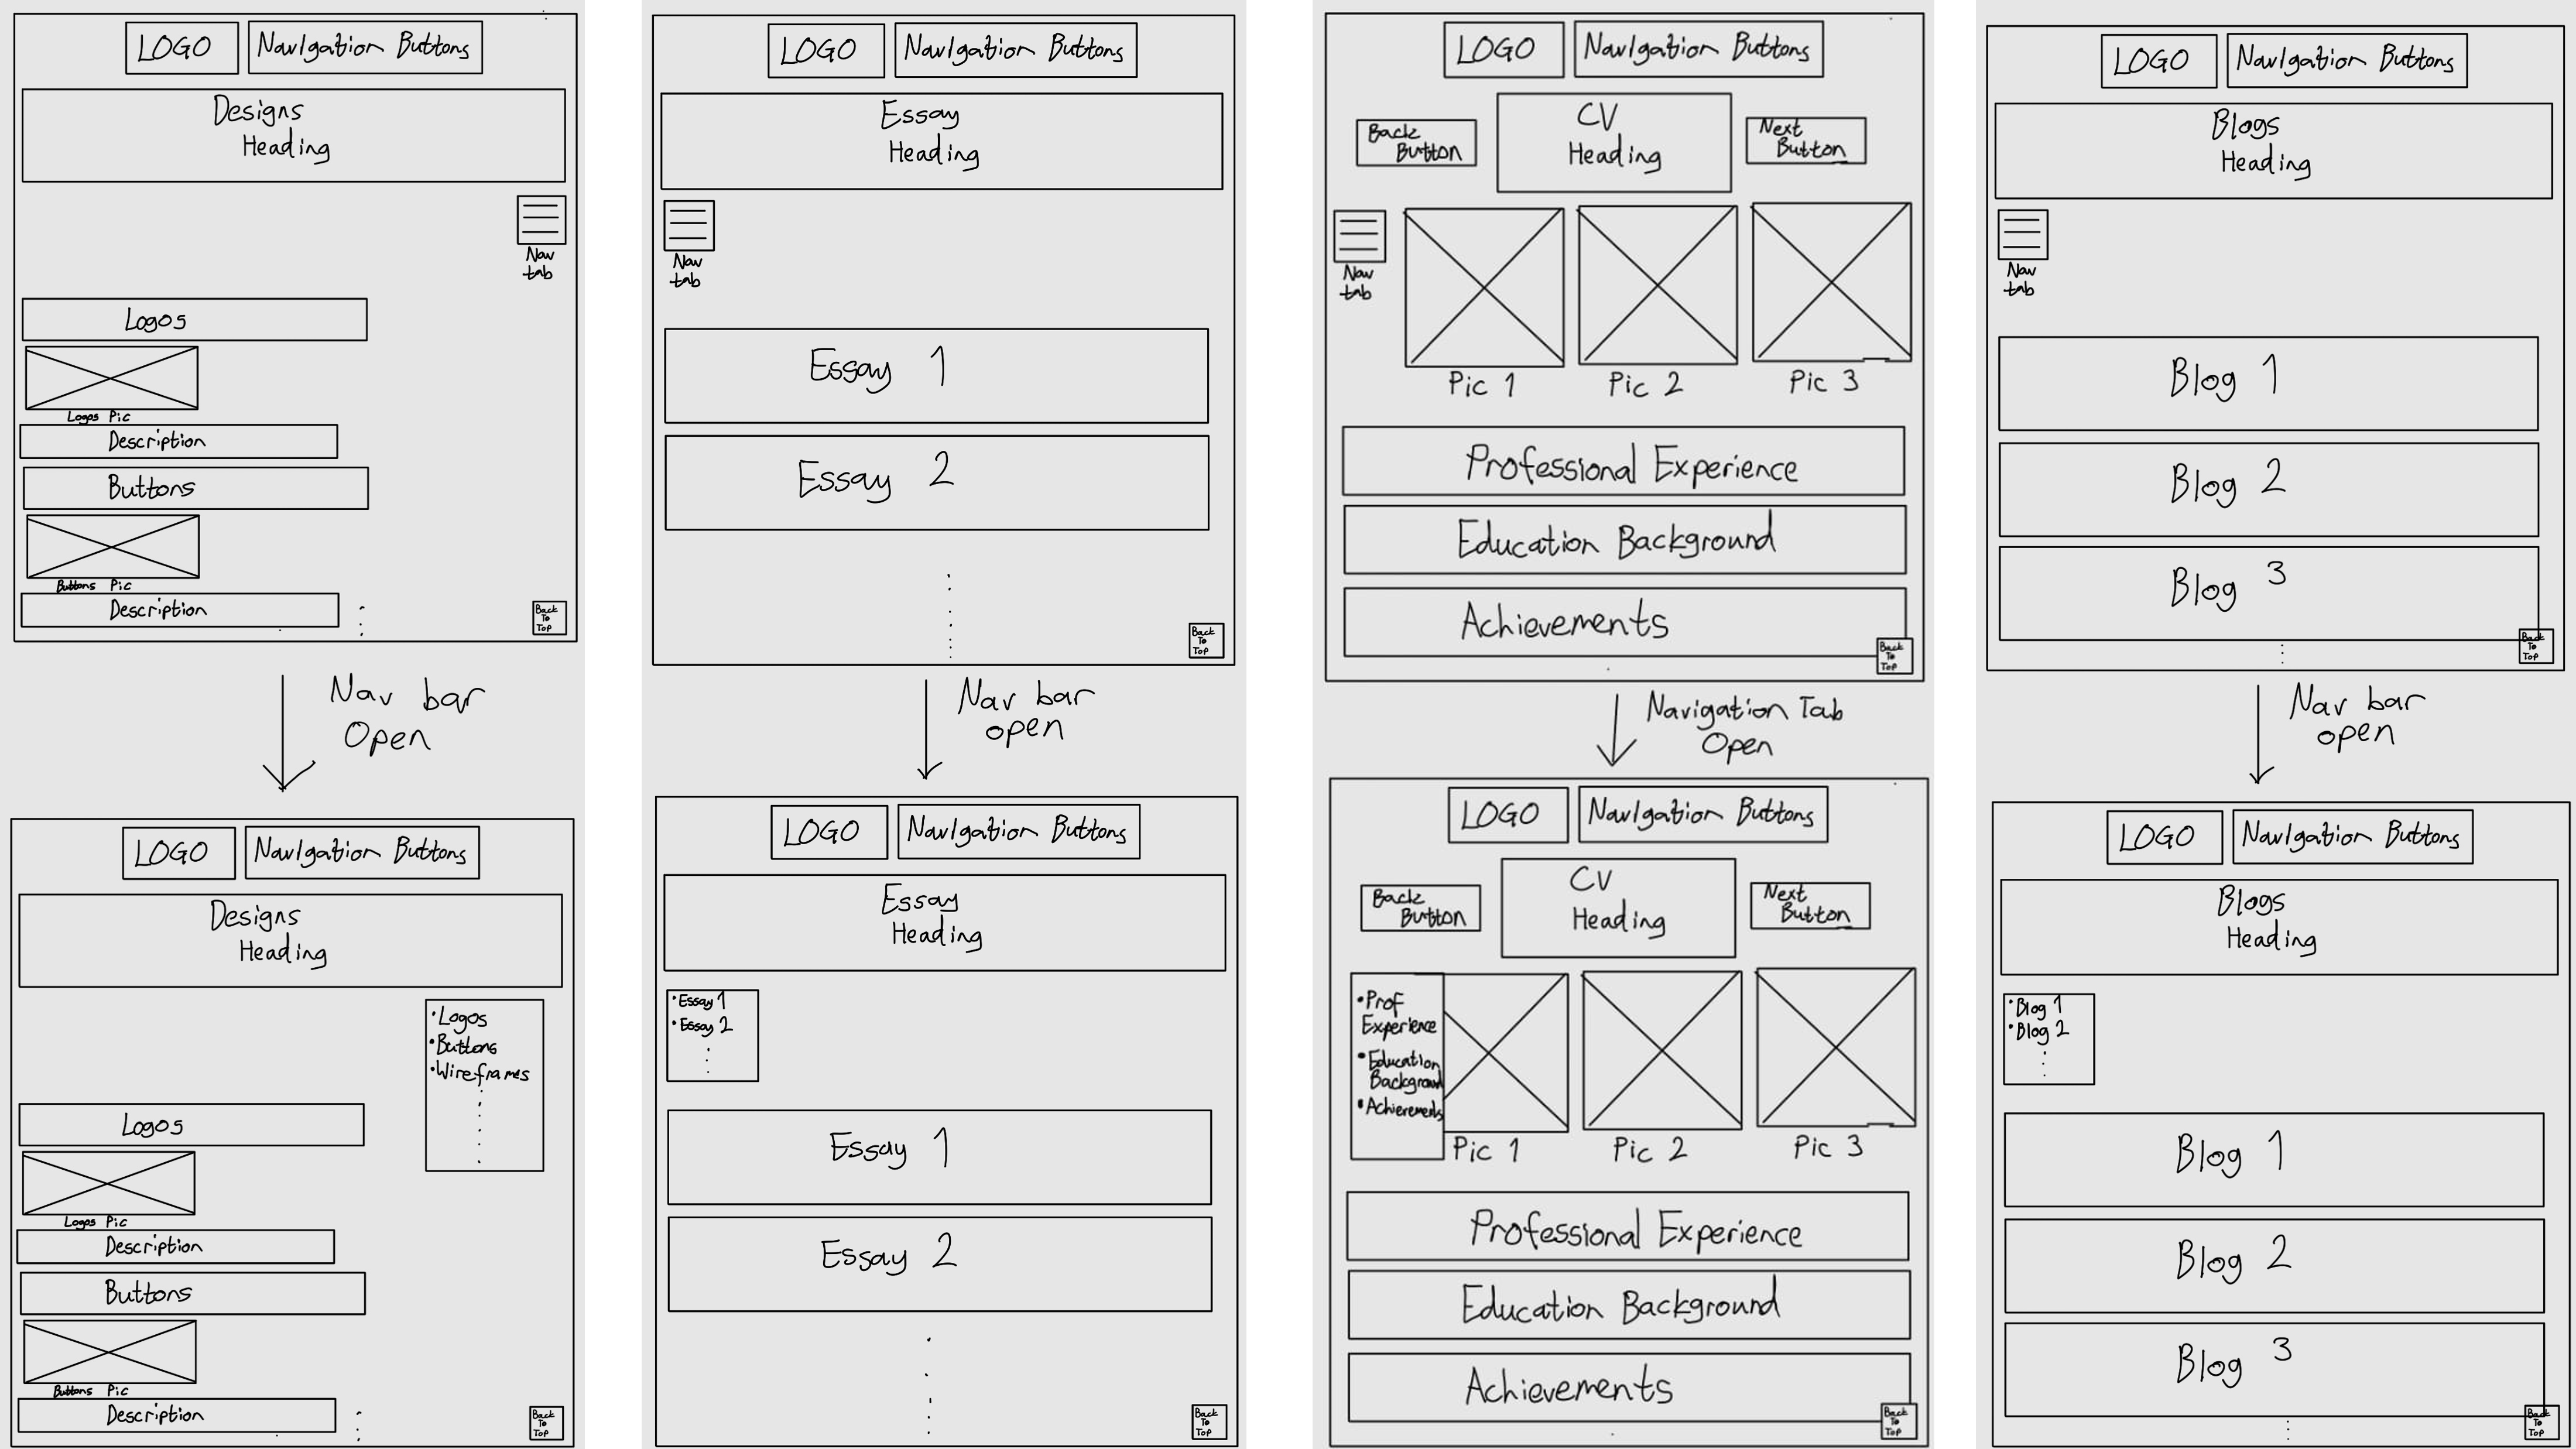 LOGO
Navigation Buttons
Designs
Heading
Nav
tab
Logos
Logos Pic
Description
Buttons
Buttons Pic
Description
Back
To
Top
Nav bar
Open
LOGO
Navigation Buttons
Designs
Heading
• Logos
• Buttons
• Wireframes
Logos
Logos Pic
Description
Buttons
Buttons Pic
Description
Back
To
Top
LOGO
Navigation Buttons
Essay
Heading
Nav
tab
Essay 1
Essay 2
Back
To
Top
Nav bar
open
LOGO
Navigation Buttons
Essay
Heading
• Essay 1
• Essay 2
Essay 1
Essay 2
Back
To
Top
LOGO
Navigation Buttons
Back
Button
CV
Heading
Next
Button
Nav
tab
Pic 1
Pic 2
Pic 3
Professional Experience
Education Background
Achievements
Back
To
Top
Navigation Tab
Open
LOGO
Navigation Buttons
Back
Button
CV
Heading
Next
Button
• Prof
Experience
• Education
Background
• Achievements
Pic 1
Pic 2
Pic 3
Professional Experience
Education Background
Achievements
Back
To
Top
LOGO
Navigation Buttons
Blogs
Heading
Nav
tab
Blog 1
Blog 2
Blog 3
Back
To
Top
Nav bar
open
LOGO
Navigation Buttons
Blogs
Heading
• Blog 1
• Blog 2
Blog 1
Blog 2
Blog 3
Back
To
Top